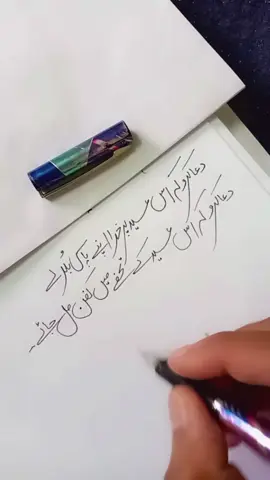 دعا کرو کہ اس عید پر خدا اپنے پاس بلا لے
دعا کرو کہ اس عید کے تحفے میں کفن مل جائے۔